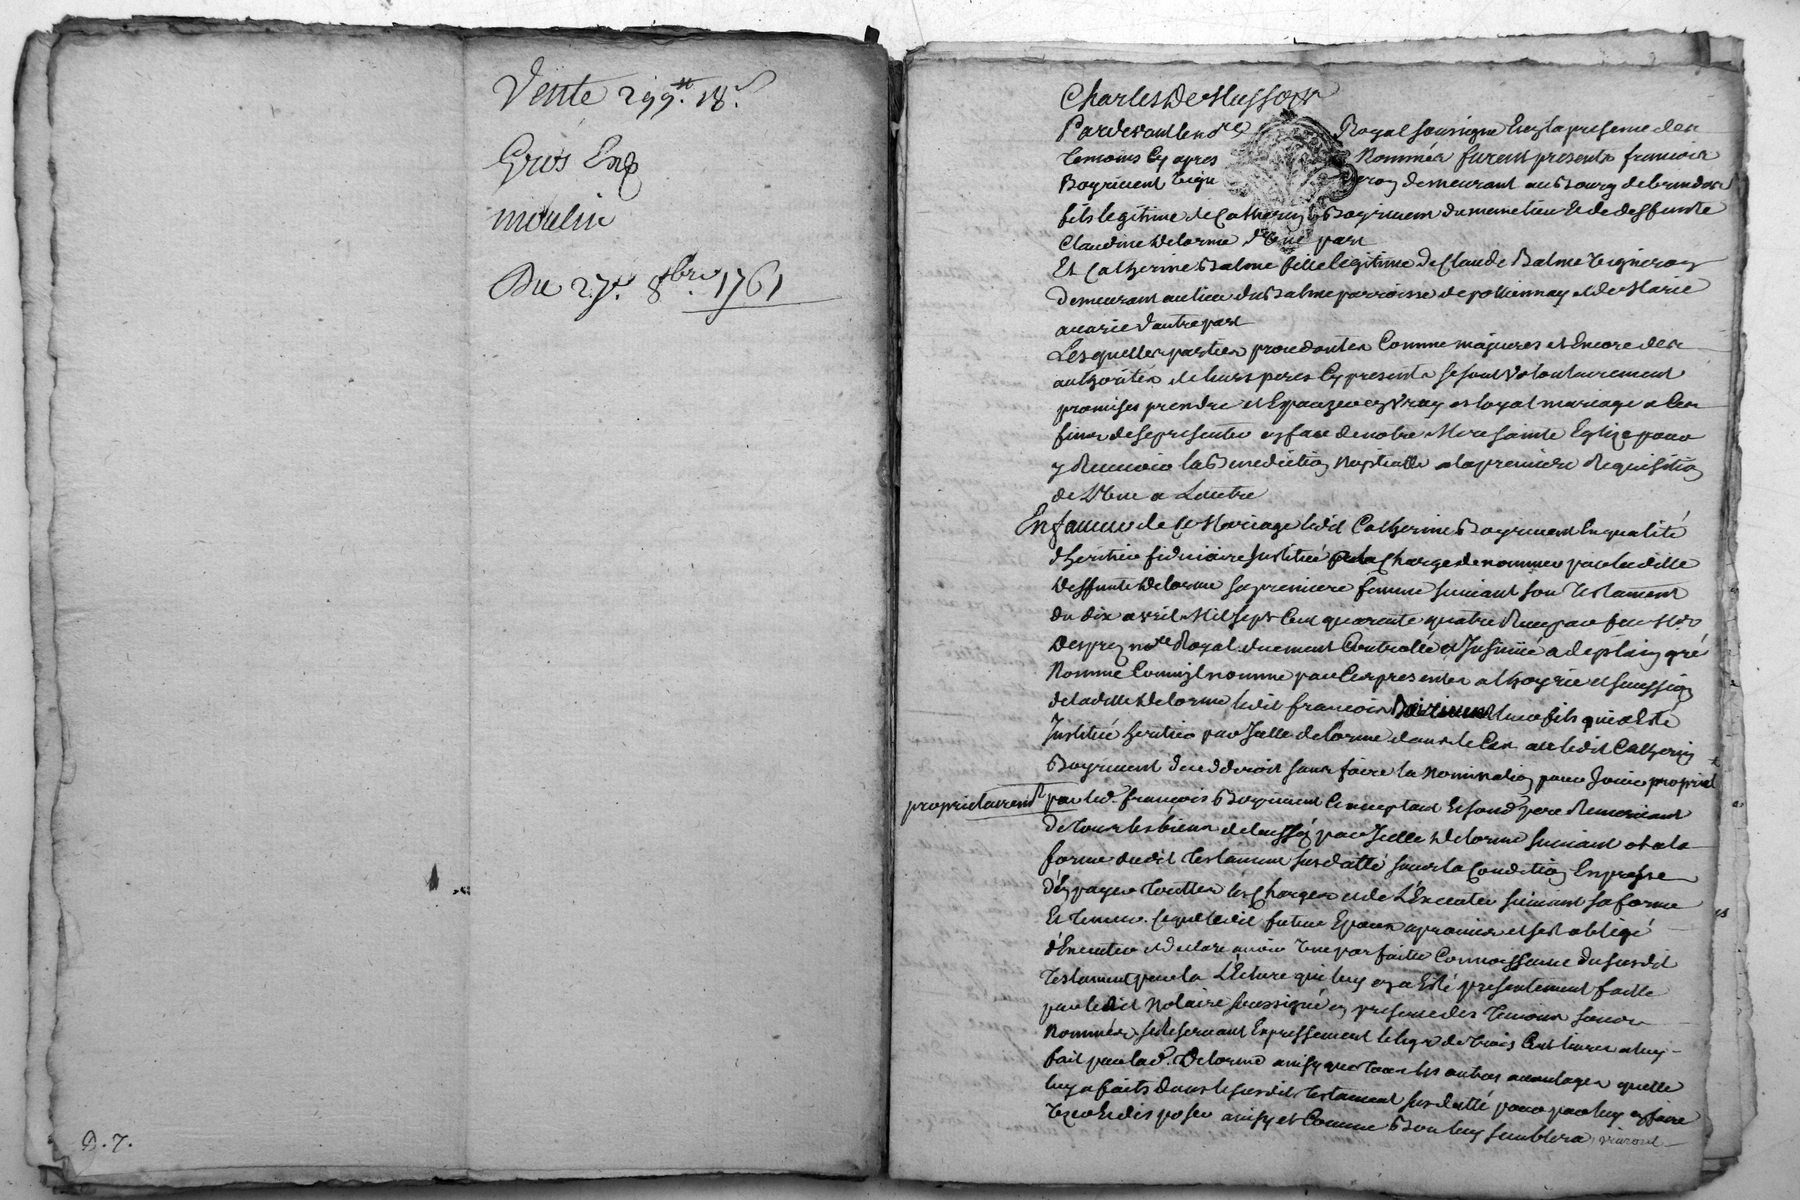 Vente 299.tt 18.s
Gros Exp
moulin
Du 27.e 8bre 1761
9.7.
Charles De Musson
Pardevant le no.re Royal soussigné En la presence des
temoins Cy apres Nommés furent presents francois
Boyrivent vigneron demeurant au Bourg de brindas
fils legitime de Catherin Boyrivent du meme lieu et de deffunte
Claudine Delorme d'une part
Et Catherine Balme fille legitime de Claude Balme vigneron
demeurant au lieu du Balme parroisse de pollionnay et de Marie
d'autre part
Lesquelles parties procedantes Comme majeures et Encore des
authorités de leurs peres Cy presents se sont volontairement
promises prendre et Epouzer en vray et loyal mariage a Ces
fins de se presenter en face de notre Mere sainte Eglize pour
y Recevoir la Benediction Nuptialle a la premiere Requisition
de L'une a Lautre
En faveur de Ce Mariage ledit Catherin Boyrivent En qualité
d'heritier fiduciaire Institué a la Charge de nommer par ladille
Deffunte Delorme sa premiere femme suivant son Testament
du dix avril Mil sept Cent quarente quatre Receu par feu Me
Desprez no.re Royal duement Controllé et Insinué a de plain gré
Nommé Comm'il nomme par Ces presentes a l'hoyrie et succession
de ladille Delorme ledit francois Boirivent leur fils qui a Esté
Institué heritier par Icelle delorme dans le Cas ou ledit Catherin
Boyrivent decedderoit sans faire la Nomination pour Jouir propriet
proprietairemt par led. françois Boyrivent Ce acceptant Et son d. pere Remerciant
de tous les biens delaissés par Icelle Delorme suivant et a la
forme dudit Testament susdatté sous la Condition Expresse
d'En payer touttes les Charges et de L'Executer suivant sa forme
Et teneur. Ce que ledit futur Epoux a promis et s'est obligé
d'Executer et declaré avoir une parfaite Connoissance du susdit
testament par la Lecture qui luy en a Esté presentement faitte
par ledit Notaire soussigné en presence des temoins sous
Nommés. se Reservant Expressement le legs de trois Cent livres a luy
fait par lad. Delorme ainsy que tous les autres avantages quelle
luy a faits dans le susdit testament susdatté pour par luy en faire
Uzer et disposer ainsy et Comme Bon luy semblera